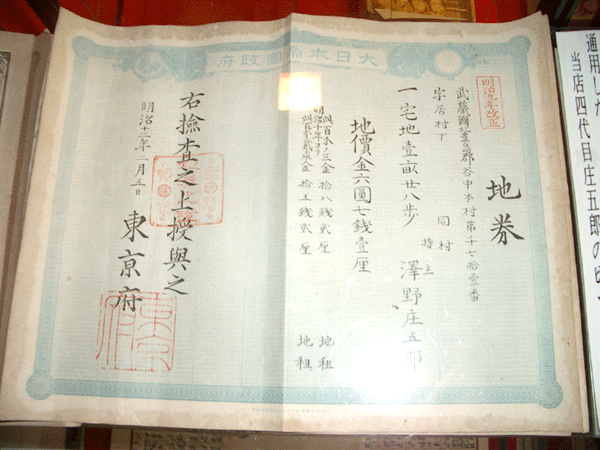 大日本帝國政府
明治九年改正
地券
武蔵國豊島郡谷中本村第千七拾壹番
字居村下
同村
一宅地壹畝廿八歩
持主
澤野庄五郎
地價金六圓七銭壹厘
此百分ノ三金 拾八銭貳厘 地租
明治十年ヨリ
此百分ノ貳ケ半金 拾五銭貳厘 地租
右撿査之上授與之
明治十二年二月五日
東京府
通用した
当店四代目庄五郎の